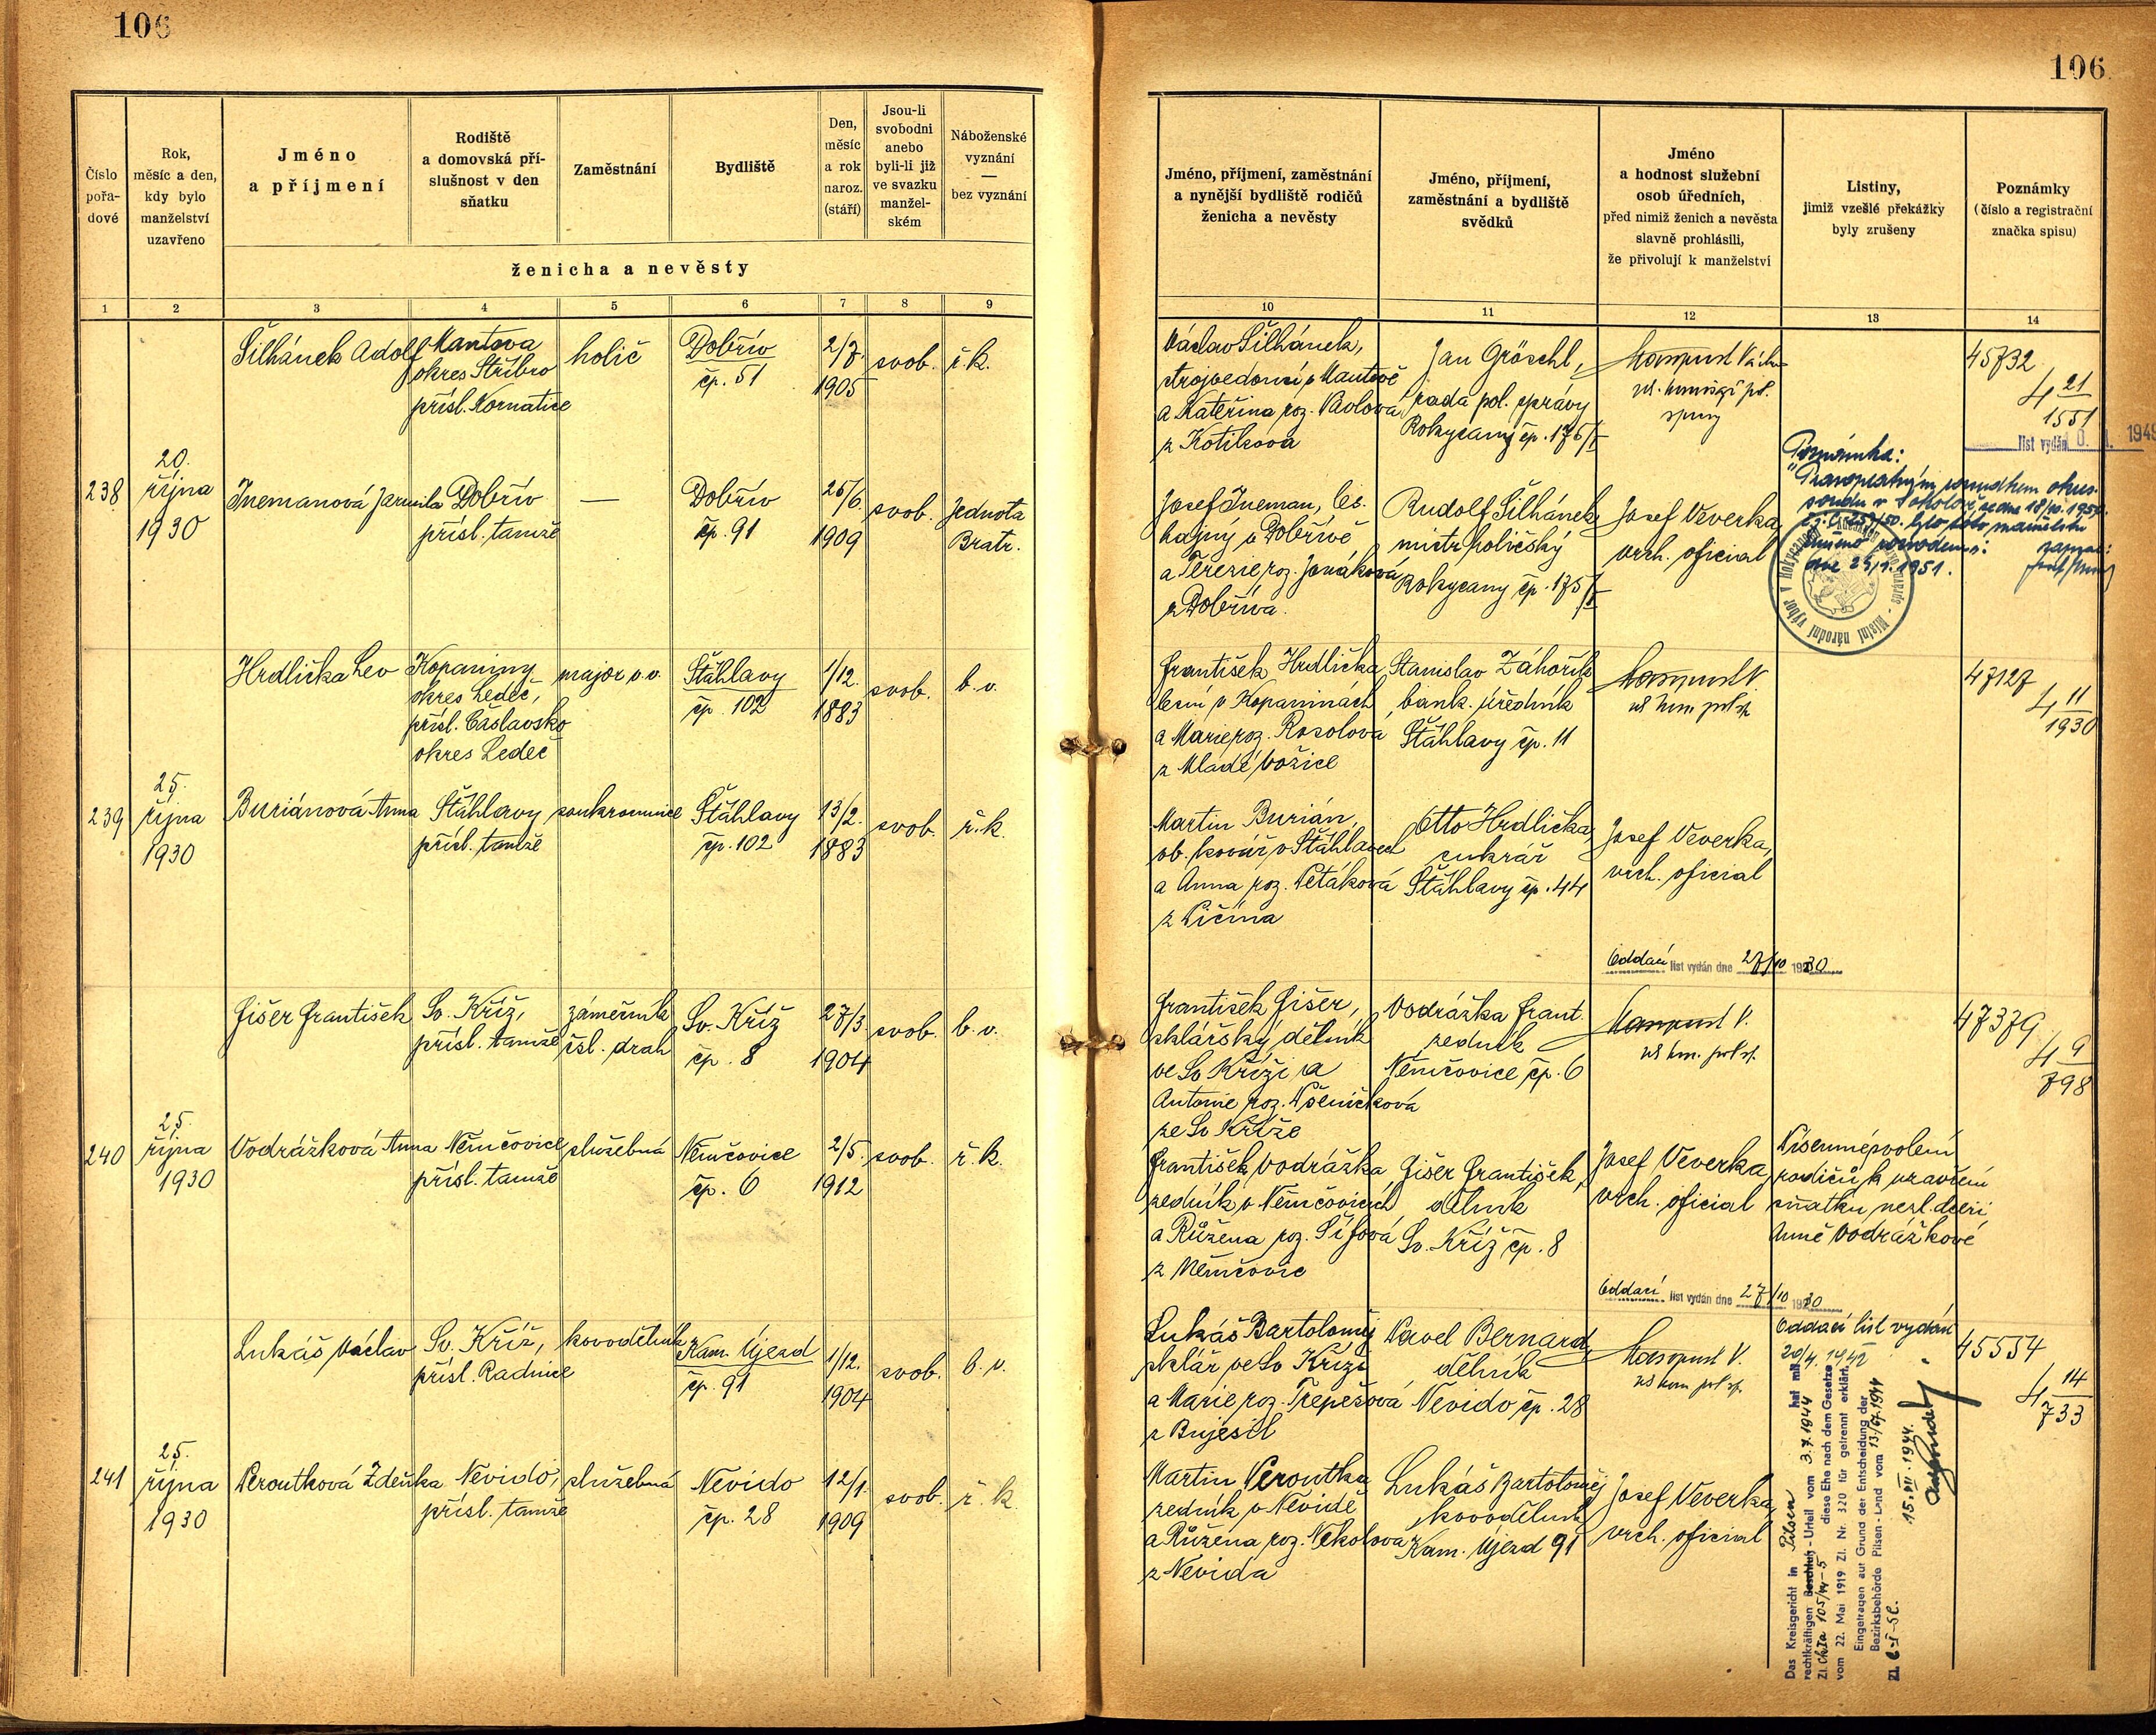 106
Číslo
pořa-
dové
Rok,
měsíc a den,
kdy bylo
manželství
uzavřeno
Jméno
a příjmení
Rodiště
a domovská pří-
slušnost v den
sňatku
Zaměstnání
Bydliště
Den,
měsíc
a rok
naroz.
(stáří)
Jsou-li
svobodni
anebo
byli-li již
ve svazku
manžel-
ském
Náboženské
vyznání
—
bez vyznání
ženicha a nevěsty
1 2 3 4 5 6 7 8 9
Šilhánek Adolf
Mantova
okres Stříbro
přísl. Kornatice
holič
Dobřív
čp. 51
2/7.
1905
svob.
ř. k.
238
20.
října
1930
Inemanová Jarmila
Dobřív
přísl. tamže
—
Dobřív
čp. 91
25/6.
1909
svob.
Jednota
Bratr.
Hrdlička Lev
Kopaniny
okres Ledeč,
přísl. Čáslavsko
okres Ledeč
major v. v.
Šťáhlavy
čp. 102
1/12.
1883
svob.
b. v.
239
25.
října
1930
Buriánová Anna
Šťáhlavy
přísl. tamže
soukromnice
Šťáhlavy
čp. 102
13/2.
1883
svob.
ř. k.
Fišer František
Sv. Kříž,
přísl. tamže
zámečník
čsl. drah
Sv. Kříž
čp. 8
27/3.
1904
svob.
b. v.
240
25.
října
1930
Vodrážková Anna
Němčovice
přísl. tamže
služebná
Němčovice
čp. 6
2/5.
1912
svob.
ř. k.
Lukáš Václav
Sv. Kříž,
přísl. Radnice
kovodělník
Kam. Újezd
čp. 91
1/12.
1904
svob.
b. v.
241
25.
října
1930
Peroutková Zdeňka
Nevido,
přísl. tamže
služebná
Nevido
čp. 28
12/1.
1909
svob.
ř. k.
106
Jméno, příjmení, zaměstnání
a nynější bydliště rodičů
ženicha a nevěsty
Jméno, příjmení,
zaměstnání a bydliště
svědků
Jméno
a hodnost služební
osob úředních,
před nimiž ženich a nevěsta
slavně prohlásili,
že přivolují k manželství
Listiny,
jimiž vzešlé překážky
byly zrušeny
Poznámky
(číslo a registrační
značka spisu)
10 11 12 13 14
Václav Šilhánek,
strojvedoucí v Mantově
a Kateřina roz. Pavlová
z Kotikova
Jan Gröschl,
rada pol. správy
Rokycany čp. 175/I
45732
4 21
1551
list vydán 1949
Josef Ineman, čes.
hajný v Dobřívě
a Terezie roz. Janáková
z Dobříva.
Rudolf Šilhánek
mistr holičský
Rokycany čp. 175/I
Josef Veverka,
vrch. oficial
Poznámka:
Pravoplatným rozsudkem okres.
soudu v Sokolově ze dne 18/10. 1950.
bylo toto manželství
zrušeno rozvodem.
Místní národní výbor v Rokycanech
František Hrdlička
v Kopaninách
a Marie roz. Rosolová
z Mladé Vožice
Stanislav Záhořík
bank. úředník
Šťáhlavy čp. 11
47127
4 11
1930
Martin Burián,
ob. kovář v Šťáhlavech
a Anna roz. Petáková
z Ličína
Otto Hrdlička,
cukrář
Šťáhlavy čp. 44
Josef Veverka,
vrch. oficial
Oddací list vydán dne 27/10 1930
František Fišer,
sklářský dělník
ve Sv. Kříži a
Antonie roz. Pšeničková
ze Sv. Kříže
Vodrážka Frant.
zedník
Němčovice čp. 6
47379
4 9
798
František Vodrážka
zedník v Němčovicích
a Růžena roz. Šifová
z Němčovic
Fišer František,
dělník
Sv. Kříž čp. 8
Josef Veverka,
vrch. oficial
Písemné svolení
rodičů k uzavření
sňatku nezl. dceři
Anně Vodrážkové
Oddací list vydán dne 27/10 1930
Lukáš Bartoloměj
sklář ve Sv. Kříži
a Marie roz. Trepešová
z Bujesil
Pavel Bernard,
dělník
Nevido čp. 28
Oddací list vydán
20/4. 1942
45554
4 14
733
Martin Peroutka
zedník v Nevidě
a Růžena roz. Nekolová
z Nevida
Lukáš Bartoloměj
kovodělník
Kam. Újezd 91
Josef Veverka,
vrch. oficial
Das Kreisgericht in Pilsen hat mit
rechtkräftigen Beschluß - Urteil vom 3.7.1944
Zl. Ck Ia 105/44-5 diese Ehe nach dem Gesetze
vom 22. Mai 1919 Zl. Nr. 320 für getrennt erklärt.
Eingetragen auf Grund der Entscheidung der
Bezirksbehörde Pilsen-Land vom 13/07.1944
15. VII. 1944.